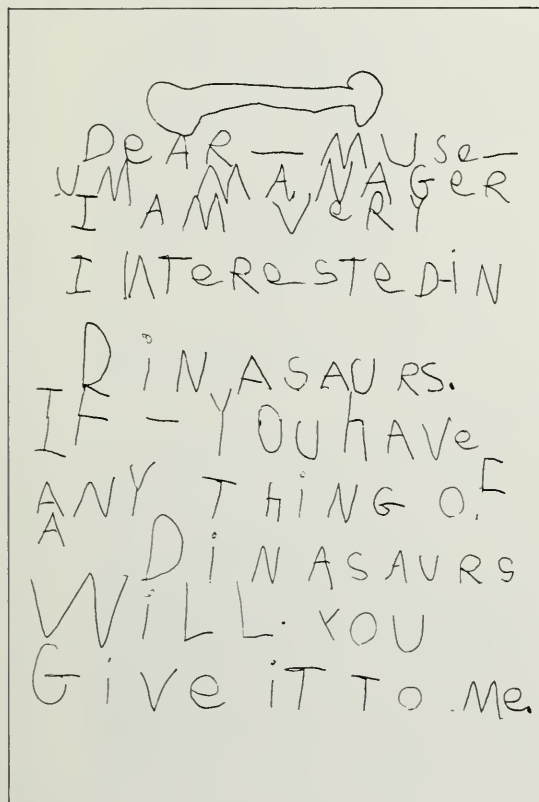 DeAR — MUSe-
UM MANAGeR
I AM VeRY
INTeReSTeD-iN
DiNASAURS.
IF - YOU hAVe
ANY THiNG O.F
A DiNASAURS
WiLL. YOU
GiVe iT TO .Me.